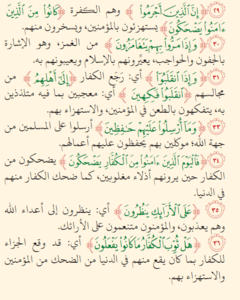 ﴿٢٩﴾ ﴿إِنَّ ٱلَّذِينَ أَجْرَمُوا۟﴾ وهم الكفرة ﴿كَانُوا۟ مِنَ ٱلَّذِينَ
ءَامَنُوا۟ يَضْحَكُونَ﴾ يستهزئون بالمؤمنين، ويسخرون منهم.
﴿٣٠﴾ ﴿وَإِذَا مَرُّوا۟ بِهِمْ يَتَغَامَزُونَ﴾ من الغمز، وهو الإشارة
بالجفون والحواجب، يعيّرونهم بالإسلام ويعيبونهم به.
﴿٣١﴾ ﴿وَإِذَا ٱنقَلَبُوٓا۟﴾ أي: رَجَع الكفار ﴿إِلَىٰٓ أَهْلِهِمُ﴾ من
مجالسهم ﴿ٱنقَلَبُوا۟ فَكِهِينَ﴾ أي: معجبين بما فيه متلذذين
به، يتفكهون بالطعن في المؤمنين، والاستهزاء بهم.
﴿٣٣﴾ ﴿وَمَآ أُرْسِلُوا۟ عَلَيْهِمْ حَٰفِظِينَ﴾ أرسلوا على المسلمين من
جهة الله؛ موكلين بهم يحفظون عليهم أعمالهم.
﴿٣٤﴾ ﴿فَٱلْيَوْمَ ٱلَّذِينَ ءَامَنُوا۟ مِنَ ٱلْكُفَّارِ يَضْحَكُونَ﴾ يضحكون من
الكفار حين يرونهم أذلاء مغلوبين، كما ضحك الكفار منهم
في الدنيا.
﴿٣٥﴾ ﴿عَلَى ٱلْأَرَآئِكِ يَنظُرُونَ﴾ أي: ينظرون إلى أعداء الله
وهم يعذبون، والمؤمنون متنعمون على الأرائك.
﴿٣٦﴾ ﴿هَلْ ثُوِّبَ ٱلْكُفَّارُ مَا كَانُوا۟ يَفْعَلُونَ﴾ أي: قد وقع الجزاء
للكفار بما كان يقع منهم في الدنيا من الضحك من المؤمنين
والاستهزاء بهم.